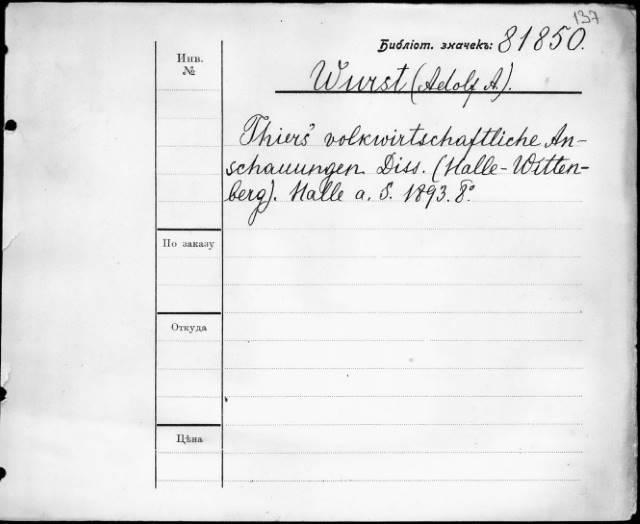 137
Библіот. значекъ: 81850.
Инв.
№
Wurst (Adolf A).
Thiers' volkwirtschaftliche An-
schauungen. Diss. (Halle-Witten-
berg). Halle a. S. 1893. 8°.
По заказу
Откуда
Цѣна